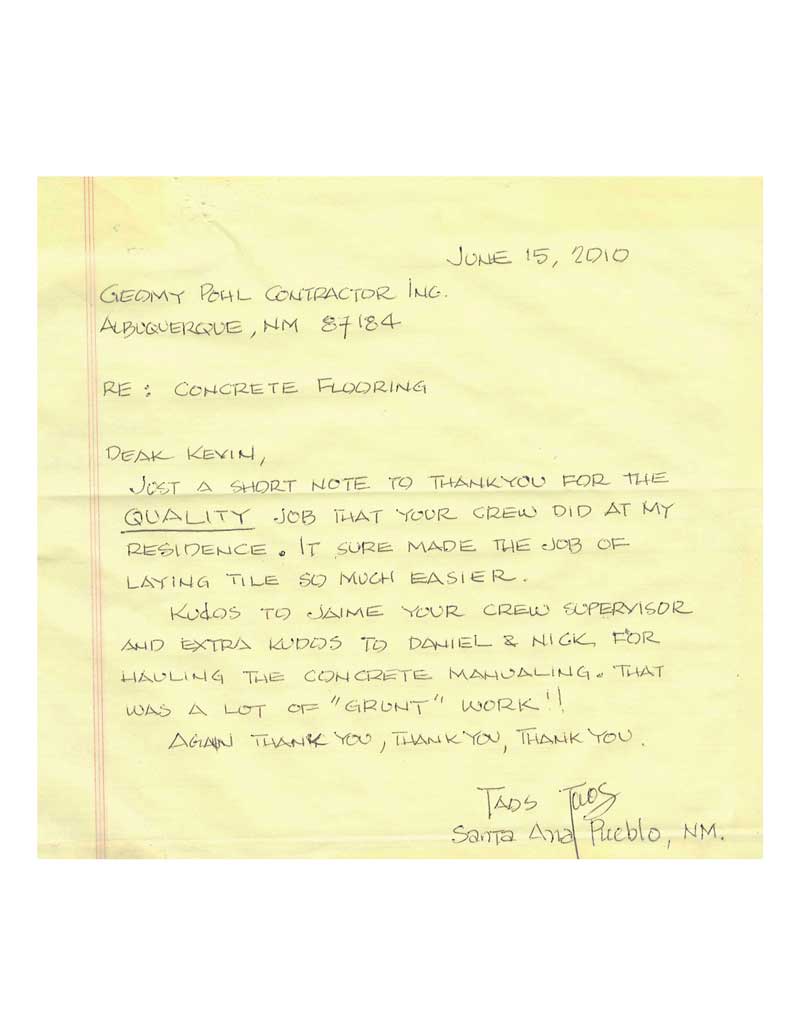 JUNE 15, 2010
GEOMY POHL CONTRACTOR INC.
ALBUQUERQUE, NM 87184
RE: CONCRETE FLOORING
DEAR KEVIN,
JUST A SHORT NOTE TO THANKYOU FOR THE
QUALITY JOB THAT YOUR CREW DID AT MY
RESIDENCE. IT SURE MADE THE JOB OF
LAYING TILE SO MUCH EASIER.
KUdOS TO JAIME YOUR CREW SUPERVISOR
AND EXTRA KUDOS TO DANIEL & NICK FOR
HAULING THE CONCRETE MANUALING. THAT
WAS A LOT OF "GRUNT" WORK!!
AGAIN THANK YOU, THANK YOU, THANK YOU.
TAOS Taos
Santa Ana Pueblo, NM.